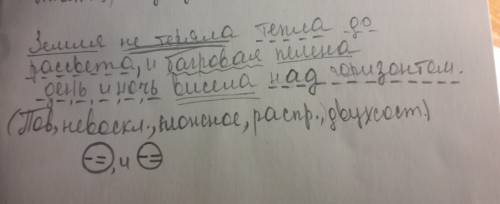 Земля не теряла тепла до
рассвета, и багровая пелена
день и ночь висела над горизонтом.
(Пов, невоскл., сложное, распр., двухсост.)
[-=], и [-=]